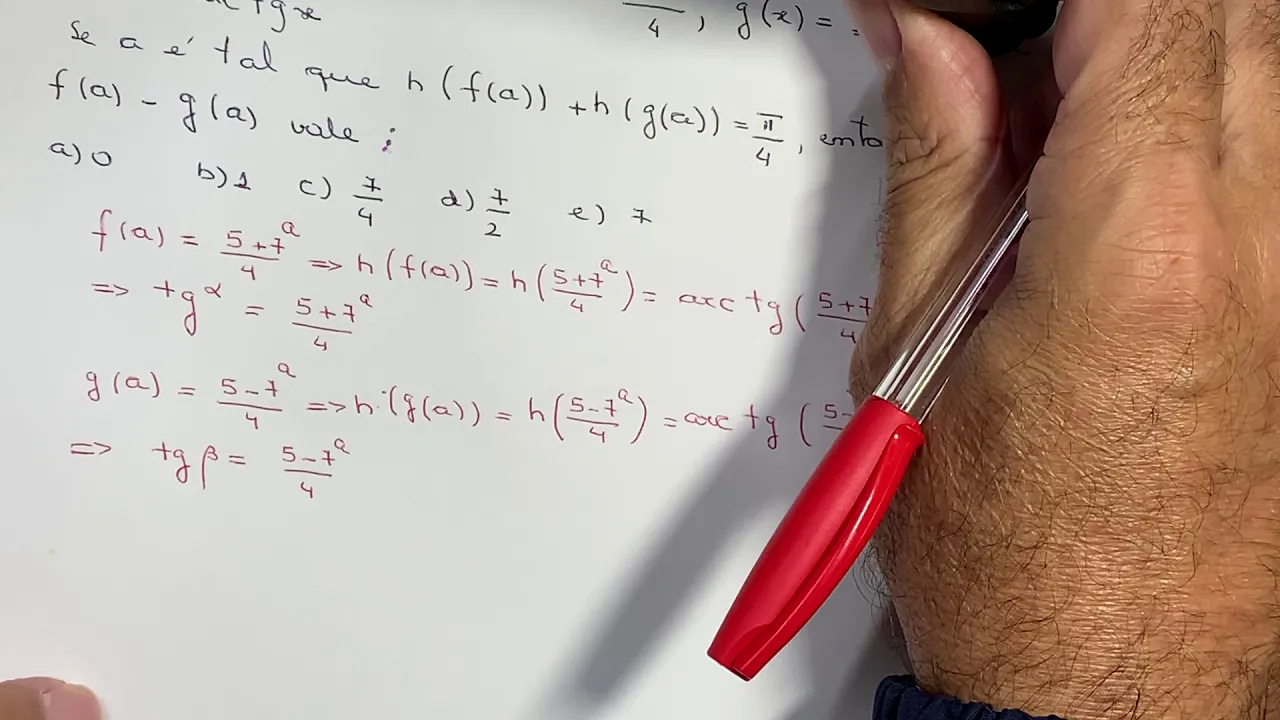 tg x
4 , g(x) =
Se a é tal que h(f(a)) + h(g(a)) = π/4 , então
f(a) - g(a) vale :
a) 0 b) 1 c) 7/4 d) 7/2 e) 7
f(a) = (5+7^a)/4 => h(f(a)) = h((5+7^a)/4) = arc tg (5+7/4
=> tg α = (5+7^a)/4
g(a) = (5-7^a)/4 => h(g(a)) = h((5-7^a)/4) = arc tg (5-
=> tg β = (5-7^a)/4